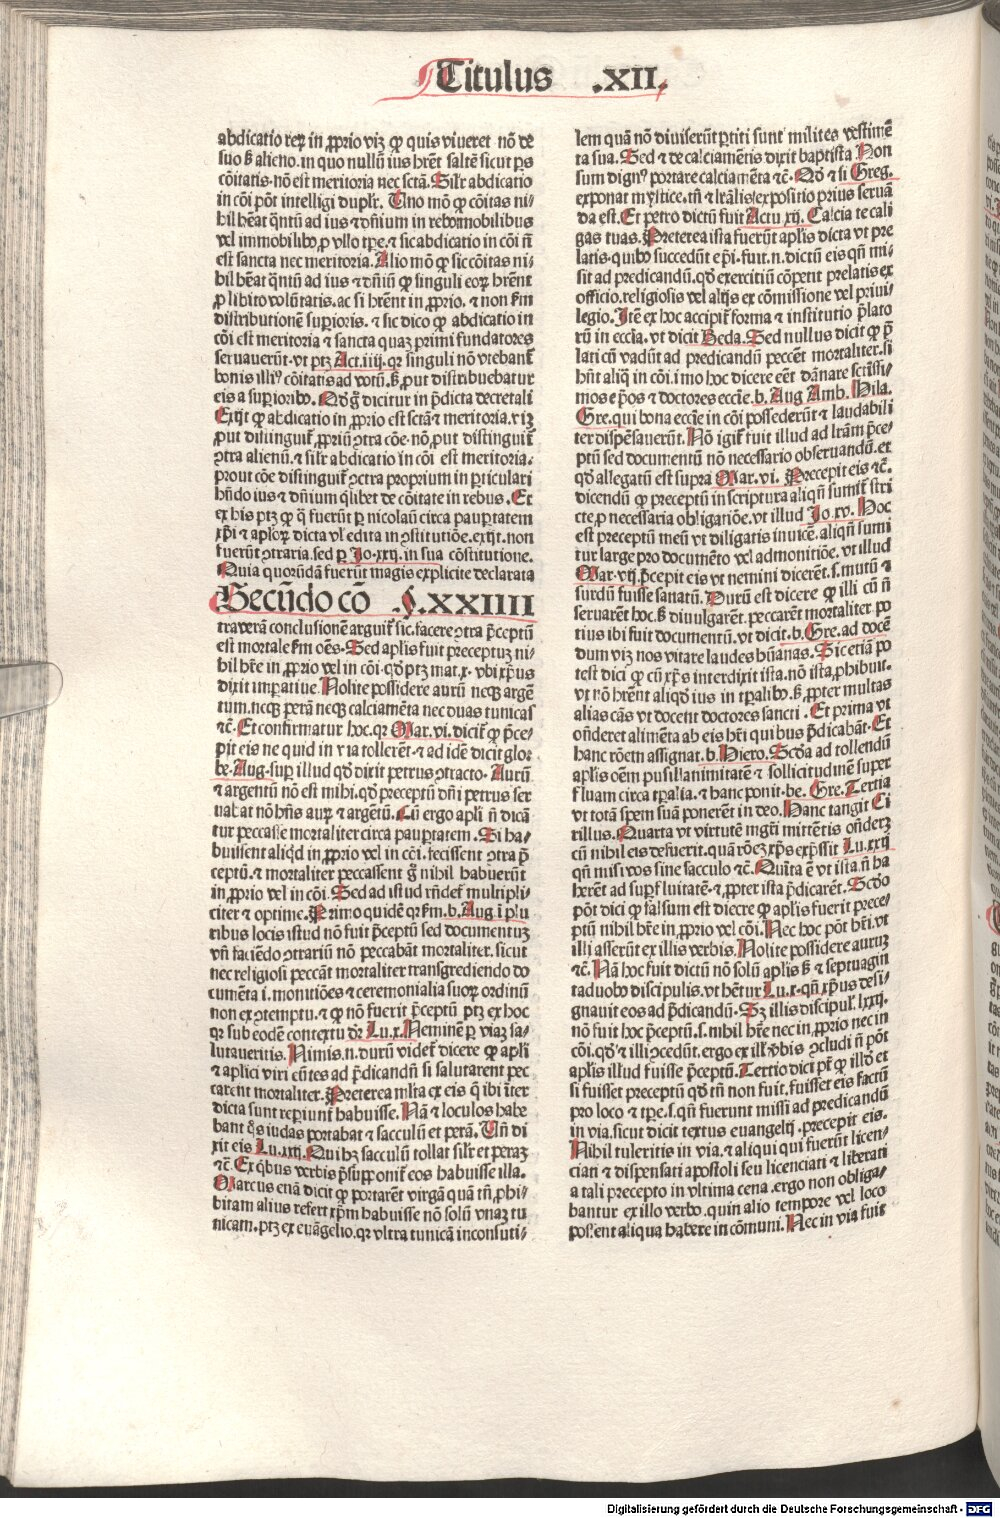 Titulus .XII.
abdicatio reꝝ in ꝓprio viꝫ ꝙ quis viueret nõ de
suo ß alieno. in quo nullũ ius hr̃et saltẽ sicut ꝑs
cõitatis. nõ est meritoria nec scťa. Silr̃ abdicatio
in cõi põt intelligi duplr̃. Uno mõ ꝙ cõitas ni⸗
bil hẽat q̃ntũ ad ius ⁊ dñium in rebꝰ mobilibus
vel immobilibꝰ, ꝓ vllo tꝑe. ⁊ sic abdicatio in cõi ñ
est sancta nec meritoria. Alio mõ ꝙ sic cõitas ni⸗
bil hẽat q̃ntũ ad ius ⁊ dñiũ ꝙ singuli eoꝝ hr̃ent
ꝓ libito volũtatis. ac si hr̃ent in ꝓprio. ⁊ non ẜm
distributionẽ suꝑioris. ⁊ sic dico ꝙ abdicatio in
cõi est meritoria ⁊ sancta quaꝫ primi fundatores
seruauerũt. vt ptꝫ Act. iiij. qꝛ singuli nõ vtebant̃
bonis illiꝰ cõitatis ad votũ. ß ꝓut distribuebatur
eis a suꝑioribꝰ. Qđ g̊ dicitur in p̃dicta decretali
Exijt ꝙ abdicatio in ꝓprio est scťa ⁊ meritoria. viꝫ
ꝓut distinguit̃ ꝓpriũ ꝯtra cõe. nõ, put distinguit̃
ꝯtra alienũ. ⁊ silr̃ abdicatio in cõi est meritoria.
prout cõe distinguit̃ ꝯtra proprium in ꝑticulari
hñdo ius ⁊ dñium q̃libet de cõitate in rebus. Et
ex his ptꝫ ꝙ q̃ fuerũt ꝑ nicolaũ circa pauꝑtatem
xp̃i ⁊ aploꝝ dicta vl̃ edita in ꝯstitutiõe. exijt. non
fuerũt ꝯtraria. sed ꝑ Jo. xxij. in sua cõstitutione.
Quia quorũdã fuerũt magis explicite declarata
Secũdo cõ .§. XXIIII
trauerã conclusionẽ arguit̃ sic. facere ꝯtra p̃ceptũ
est mortale ẜm oẽs. Sed aplis fuit preceptuꝫ ni⸗
bil hr̃e in ꝓprio vel in cõi. qđ ptꝫ mat. x. vbi xp̃us
dixit imꝑatiue. Nolite possidere aurũ necꝫ argẽ
tum. necꝫ perã necꝫ calciamẽta nec duas tunicas
⁊c̃. Et confirmatur hoc. qꝛ Mar. vi. dicit̃ ꝙ p̃ce⸗
pit eis ne quid in via tollerẽt. ⁊ ad idẽ dicit glo.
be. Aug. suꝑ illud qđ dixit petrus ꝯtracto. Aurũ
⁊ argentũ nõ est mihi. qđ preceptũ dñi petrus ser
uabat nõ hñs auꝝ ⁊ argẽtũ. Cũ ergo apli ñ dicã
tur peccasse mortaliter circa pauꝑtatem. Si ha⸗
buissent aliq̃d in ꝓprio vel in cõi. fecissent ꝯtra p̃
ceptũ. ⁊ mortaliter peccassent g̊ nihil habuerũt
in ꝓprio vel in cõi. Sed ad istud rñdet̃ multipli⸗
citer ⁊ optime. Primo quidẽ qꝛ ẜm. b. Aug ĩ plu
ribus locis istud nõ fuit p̃ceptũ sed documentuꝫ
vñ faciẽdo ꝯtrariũ nõ peccabãt mortaliter. sicut
nec religiosi peccãt mortaliter transgrediendo do
cumẽta i. monitiões ⁊ ceremonialia suoꝝ ordinũ
non ex ꝯtemptu. ⁊ ꝙ nõ fuerit p̃ceptũ ptꝫ ex hoc
qꝛ sub eodẽ contextu dr̃ Lu. x. Neminẽ ꝑ viaꝫ sa⸗
lutaueritis. Nimis. n. durũ videt̃ dicere ꝙ apli
⁊ aplici viri cũtes ad p̃dicandũ si salutarent pec
carent mortaliter. Preterea mĺta ex eis q̃ ibi iter
dicta sunt reꝑiunt̃ habuisse. Nã ⁊ loculos habe
bant q̊s iudas portabat ⁊ sacculũ et perã. Uñ di
xit eis Lu. xxij. Qui bꝫ sacculũ tollat silr̃ et peraꝫ
⁊c̃. Ex q̃bus verbis p̃supponit̃ eos habuisse illa.
Marcus etiã dicit ꝙ portarẽt virgã quã tñ ꝓhi⸗
bitam alius refert xp̃m habuisse nõ solũ vnaꝫ tu
nicam. ptꝫ ex euãgelio. qꝛ vltra tunicã inconsuti⸗
lem quã nõ diuiserũt ꝑtiti sunt milites vestimẽ
ta sua. Sed ⁊ de calciamẽtis dixit baptista Non
sum dignꝰ portare calciamẽta ⁊c̃. Qđ ⁊ si Greg.
exponat mystice. tñ ⁊ lr̃alis expositio prius seruã
da est. Et petro dictũ fuit Actu xij. Calcia te cali
gas tuas. Preterea ista fuerũt aplis dicta vt pre
latis. quibꝰ succedũt ep̃i. fuit. n. dictũ eis qñ mi⸗
sit ad predicandũ. qđ exercitiũ cõpent prelatis ex
officio. religiosis vel alijs ex cõmissione vel priui⸗
legio. Itẽ ex hoc accipit̃ forma ⁊ institutio p̃lato
rũ in eccĩa. vt dicit Beda. Sed nullus dicit ꝙ p̃
lati cũ vadũt ad predicandũ peccẽt mortaliter. si
hñt aliq̃ in cõi. imo hoc dicere eẽt dãnare sctissi⸗
mos ep̃os ⁊ doctores eccĩe. b. Aug Amb. Hila.
Gre. qui bona eccĩe in cõi possederũt ⁊ laudabili
ter dispẽsauerũt. Nõ igit̃ fuit illud ad lr̃am p̃ce⸗
ptũ sed documentũ nõ necessario obseruandũ. et
qđ allegatũ est supra Mar. vi. Precepit eis ⁊c̃.
dicendũ ꝙ preceptũ in scriptura aliqñ sumit̃ stri
cte, ꝓ necessaria obligatiõe. vt illud Jo. xv. Hoc
est preceptũ meũ vt diligatis inuicẽ. aliqñ sumi
tur large pro documẽto vel admonitiõe. vt illud
Mar. vij. p̃cepit eis vt nemini dicerẽt. s. mutũ ⁊
surdũ fuisse sanatũ. Durũ est dicere ꝙ illi cũ ñ
seruarẽt hoc. ß diuulgarẽt. peccarẽt mortaliter. po
tius ibi fuit documentũ. vt dicit. b. Gre. ad docẽ
dum viꝫ nos vitare laudes hũanas. Sic etiã po
test dici ꝙ cũ xp̃s interdixit ista. nõ ista, ꝓhibuit.
vt nõ hr̃ent aliqđ ius in tꝑalibꝰ. ß, ꝓpter multas
alias cãs vt docent doctores sancti. Et prima vt
oñderet alimẽta ab eis hr̃i quibus p̃dicabãt. Et
hanc rõem assignat. b. Hiero. Scđa ad tollendũ
aplis oẽm pusillanimitatẽ ⁊ sollicitudinẽ super
fluam circa tꝑalia. ⁊ hanc ponit. be. Gre. Tertia
vt totã spem suã ponerent in deo. Hanc tangit Ci
rillus. Quarta vt virtutẽ mgr̃i mittẽtis oñderꝫ
cũ nihil eis defuerit. quã rõeꝫ xp̃s exp̃ssit Lu. xxij
qñ misi vos sine sacculo ⁊c̃. Quĩta ẽ vt ista ñ ha
berẽt ad suꝑfluitatẽ. ⁊, ꝓpter ista p̃dicarẽt. Scđo
põt dici ꝙ falsum est dicere ꝙ aplis fuerit prece⸗
ptũ nihil hr̃e in ꝓprio vel cõi. Nec hoc põt hr̃i. vt
illi asserũt ex illis verbis. Nolite possidere auruꝫ
⁊c̃. Nã hoc fuit dictũ nõ solũ aplis ß ⁊ septuagin
ta duobꝰ discipulis. vt hẽtur Lu. x. qñ xp̃us desi⸗
gnauit eos ad p̃dicandũ. Sꝫ illis discipul̃. lxxij.
nõ fuit hoc p̃ceptũ. s. nihil hr̃e nec in ꝓprio nec in
cõi. qđ ⁊ illi ꝯcedũt. ergo ex ill̃ v̾bis ꝯcludi ñ põt
aplis illud fuisse p̃ceptũ. Tertio dici pt̃ ꝙ illđ et
si fuisset preceptũ qđ tñ non fuit. fuisset eis factũ
pro loco ⁊ tꝑe. s. qñ fuerunt missi ad predicandũ
in via. sicut dicit textus euangelij. precepit eis.
Nihil tuleritis in via. ⁊ aliqui qui fuerũt licen⸗
ciati ⁊ dispensati apostoli seu licenciati ⁊ liberati
a tali precepto in vltima cena. ergo non obliga⸗
bantur ex illo verbo. quin alio tempore vel loco
possent aliqua habere in cõmuni. Nec in via fuit
Digitalisierung gefördert durch die Deutsche Forschungsgemeinschaft - DFG